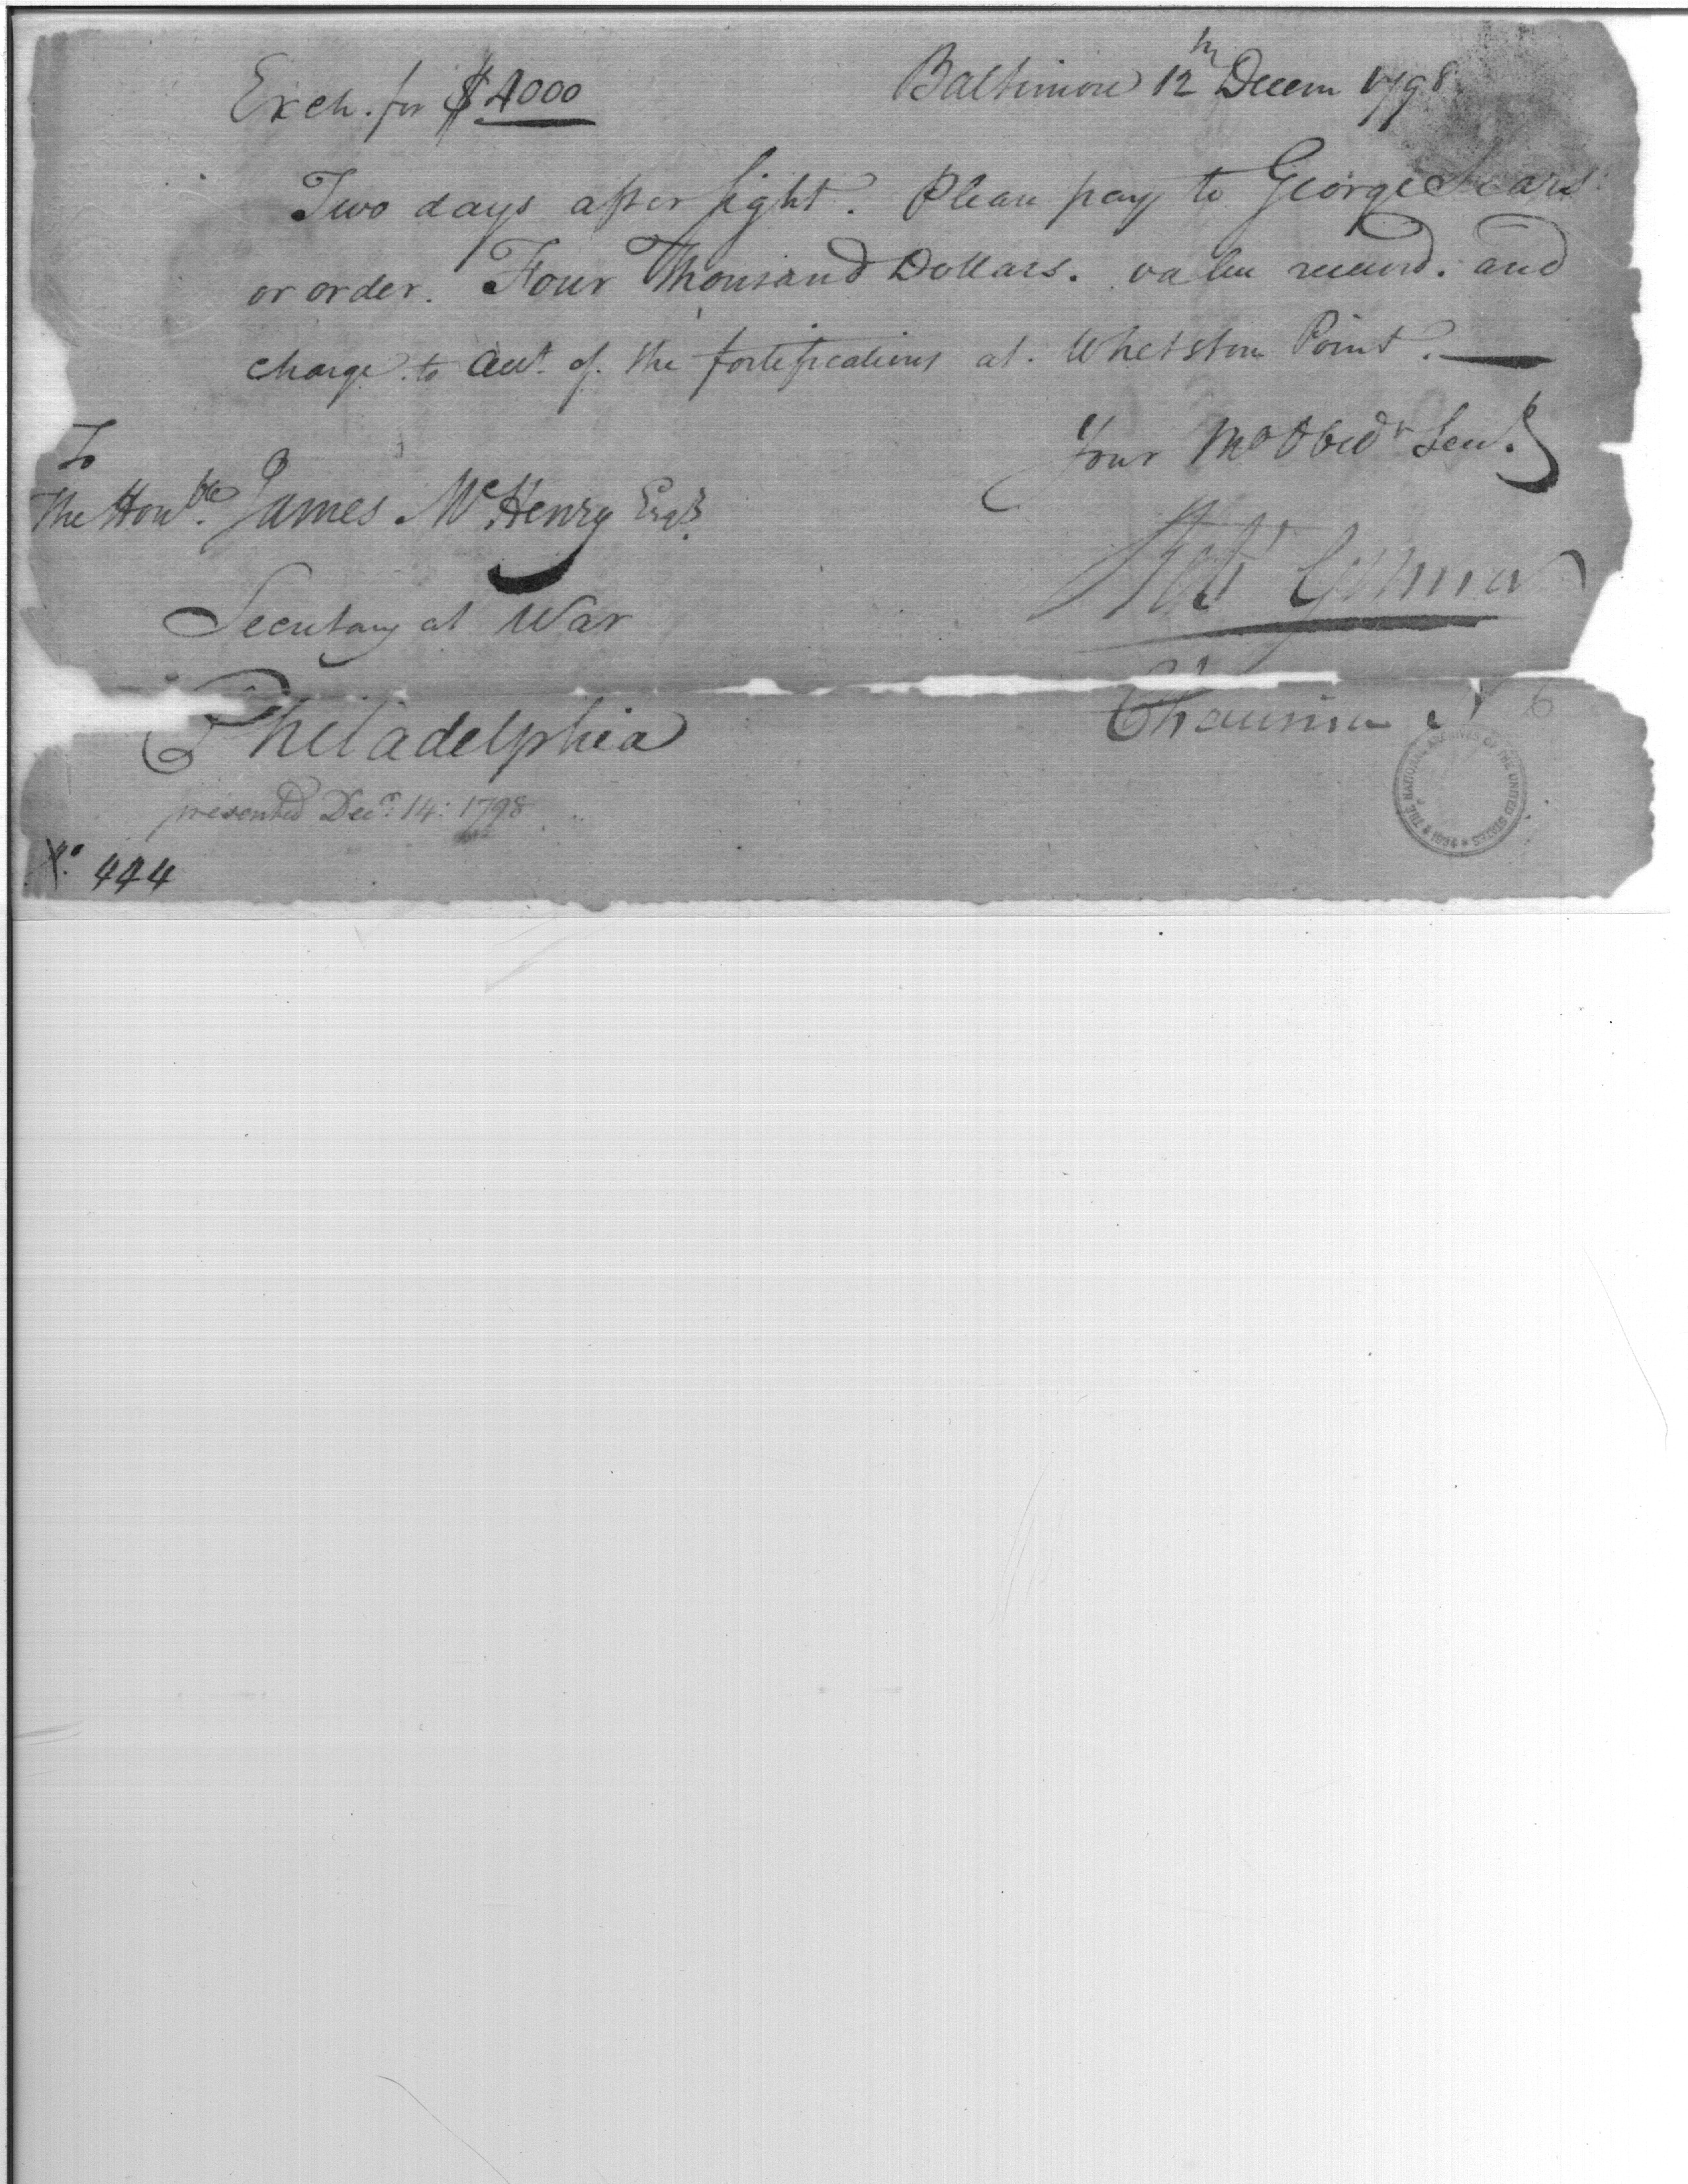 Exch. for $4000 Baltimore 12th Decem 1798
Two days after sight. Please pay to George Sears
or order. Four Thousand Dollars. value receivd. and
charge to acct. of the fortifications at Whetston Point.
Your Mo Obedt Sevt.
To
The Honble. James McHenry Esqr.
Robt Gilmor
Secretary at War
Philadelphia Chairman
presented Decr. 14: 1798
No. 444
THE NATIONAL ARCHIVES OF THE UNITED STATES * 1934 *